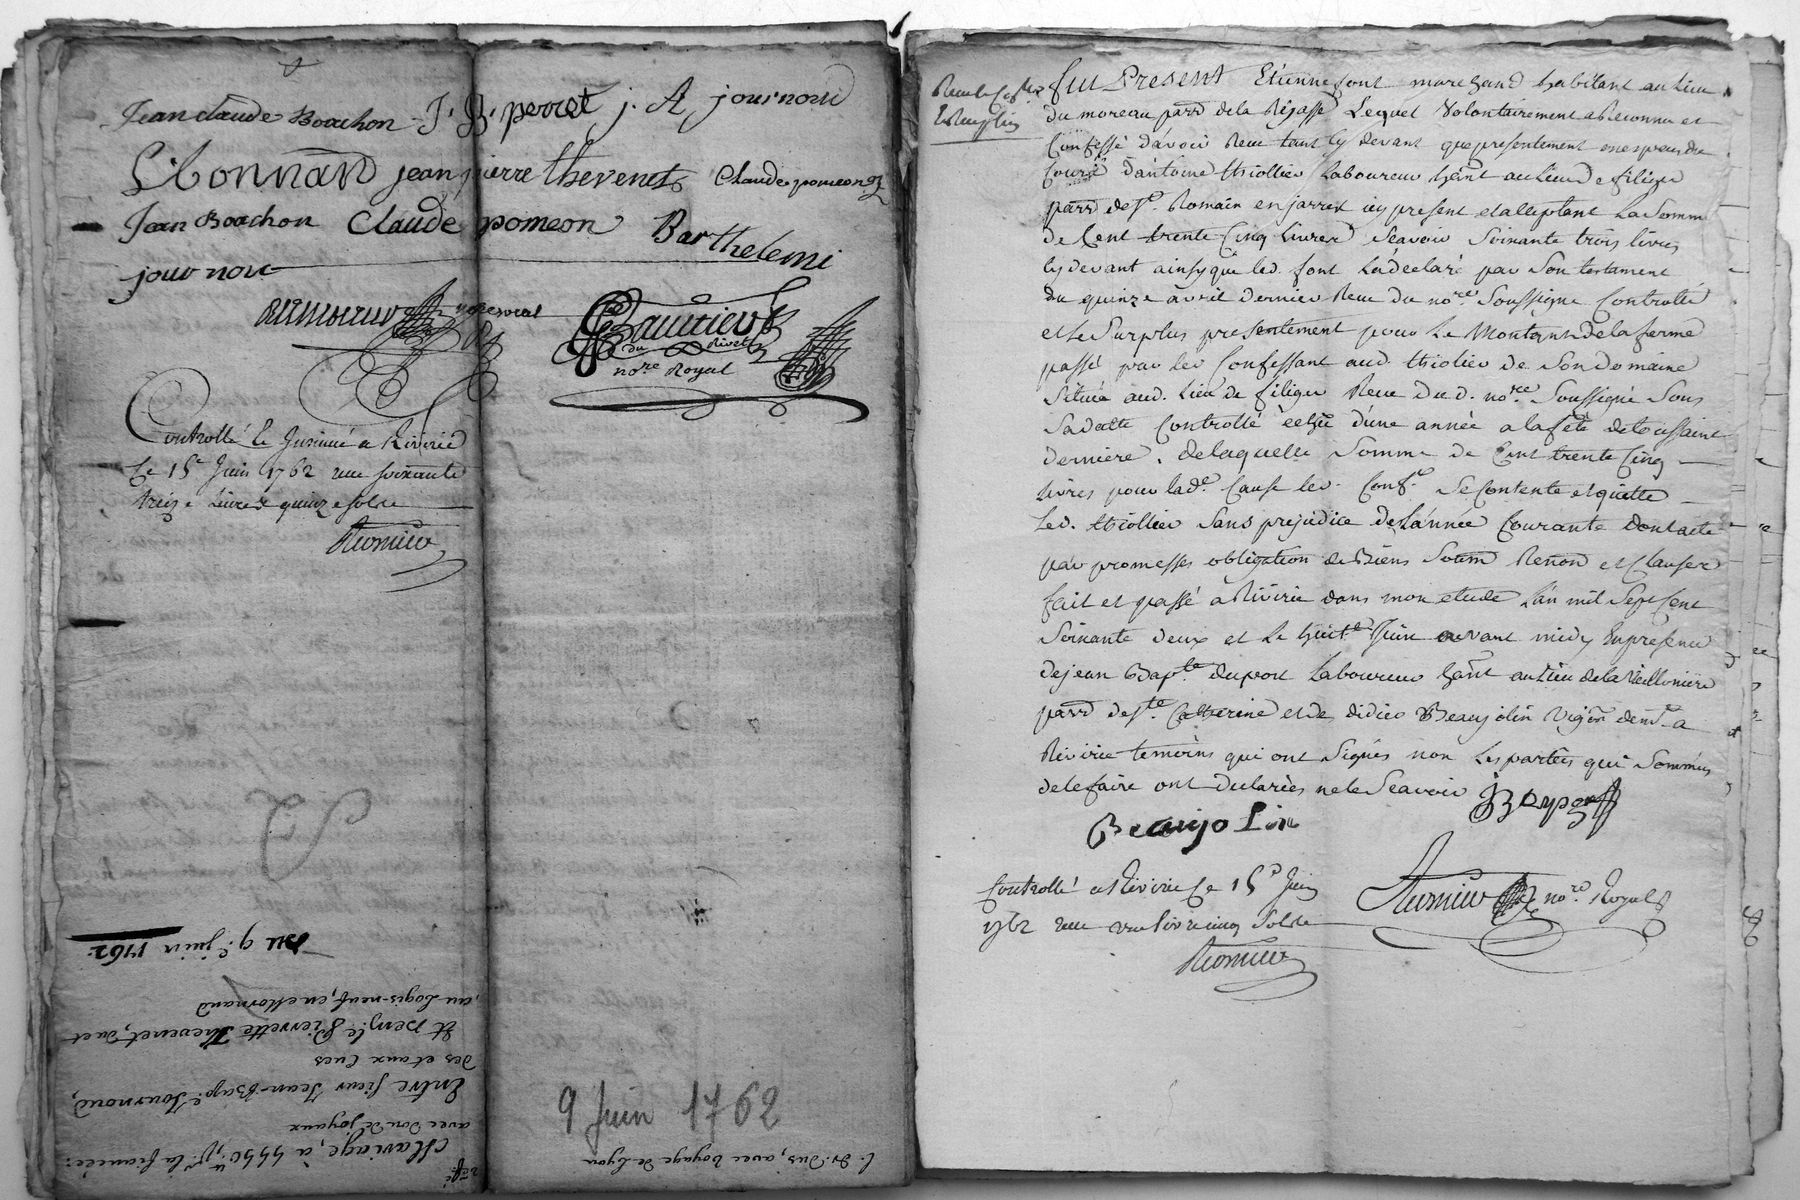 Jean claude Boachon J. B. perret j. A journoud
jean pierre thevenet Claude pomeon
Jean Boachon Claude pomeon Barthelemi
journou
Gaultier
du Rivet
nore Royal
Controllé & Insinué a Riverie
Le 15e Juin 1762 reçu soixante
treize Livres quinze sols
Du 9e juin 1762
Mariage, à la fiancée
avec don de joyaux
Entre sieur Jean-Bapt. Journoud,
des et aux lues
Et demlle Pierrette Thevenet, du et
au Logis-neuf, en Mornand
9 Juin 1762
avec voyage de Lyon
fut Present Etienne font marchand habitant au Lieu
du moreau parr de la Rajasse Lequel Volontairement a Reconnu et
Confessé d'avoir Receu tant cy devant que presentement en especes du
Cours d'antoine thiollier Laboureur hant au Lieu de filigue
parr de St. Romain en jarrest icy present et acceptant La Somme
de Cent trente Cinq Livres Sçavoir Soixante trois livres
cy devant ainsy que led. font L'a declaré par Son testament
du quinze avril dernier Receu du nore Soussigné Controllé
et Le Surplus presentement pour Le Montant de la ferme
passé par led Confessant aud. thiolier de Son Domaine
Situé aud. Lieu de filigue Receu dud. nore Soussigné Sous
Sa datte Controllé d'une année a la fête de toussaint
derniere, de laquelle Somme de Cent trente Cinq
Livres pour lade Cause led. Conft. Se Contente et quitte
Led. thiollier Sans prejudice de L'année Courante dont acte
par promesses obligation de Biens Soum Renon et Clauses
fait et passé a Riverie dans mon etude L'an mil Sept Cent
Soixante deux et Le huite Juin avant midy En presence
de jean Bapte. dupont Laboureur hant au Lieu de la
parr de Ste. Catherine et de didier Beaujolin Vigon demt a
Riverie temoins qui ont Signés non Les parties qui Sommés
de le faire ont declarées ne le Scavoir
Beaujolin
Controllé a Riverie Ce 15e Juin
1762 reçu un livre cinq Sols
nore Royal